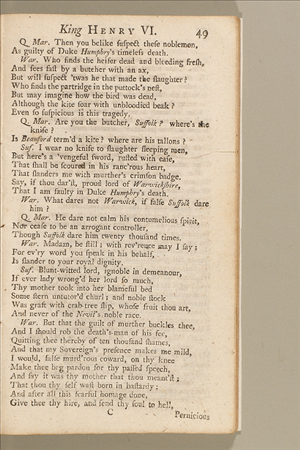 King HENRY VI. 49
Q. Mar. Then you belike suspect these noblemen,
As guilty of Duke Humphry's timeless death.
War. Who finds the heifer dead and bleeding fresh,
And sees fast by a butcher with an ax,
But will suspect 'twas he that made the slaughter?
Who finds the partridge in the puttock's nest,
But may imagine how the bird was dead,
Although the kite soar with unbloodied beak?
Even so suspicious is this tragedy.
Q. Mar. Are you the butcher, Suffolk? where's the
knife?
Is Beauford term'd a kite? where are his tallons?
Suf. I wear no knife to slaughter sleeping men,
But here's a 'vengeful sword, rusted with ease,
That shall be scoured in his ranc'rous heart,
That slanders me with murther's crimson badge.
Say, if thou dar'st, proud lord of Warwickshire,
That I am faulty in Duke Humphry's death.
War. What dares not Warwick, if false Suffolk dare
him?
Q. Mar. He dare not calm his contumelious spirit,
Nor cease to be an arrogant controller,
Though Suffolk dare him twenty thousand times.
War. Madam, be still; with rev'rence may I say;
For ev'ry word you speak in his behalf,
Is slander to your royal dignity.
Suf. Blunt-witted lord, ignoble in demeanour,
If ever lady wrong'd her lord so much,
Thy mother took into her blameful bed
Some stern untutor'd churl; and noble stock
Was graft with crab-tree slip, whose fruit thou art,
And never of the Nevil's noble race.
War. But that the guilt of murther buckles thee,
And I should rob the death's-man of his fee,
Quitting thee thereby of ten thousand shames,
And that my Sovereign's presence makes me mild,
I would, false murd'rous coward, on thy knee
Make thee beg pardon for thy passed speech,
And say it was thy mother that thou meant'st;
That thou thy self wast born in bastardy;
And after all this fearful homage done,
Give thee thy hire, and send thy soul to hell,
C Pernicious